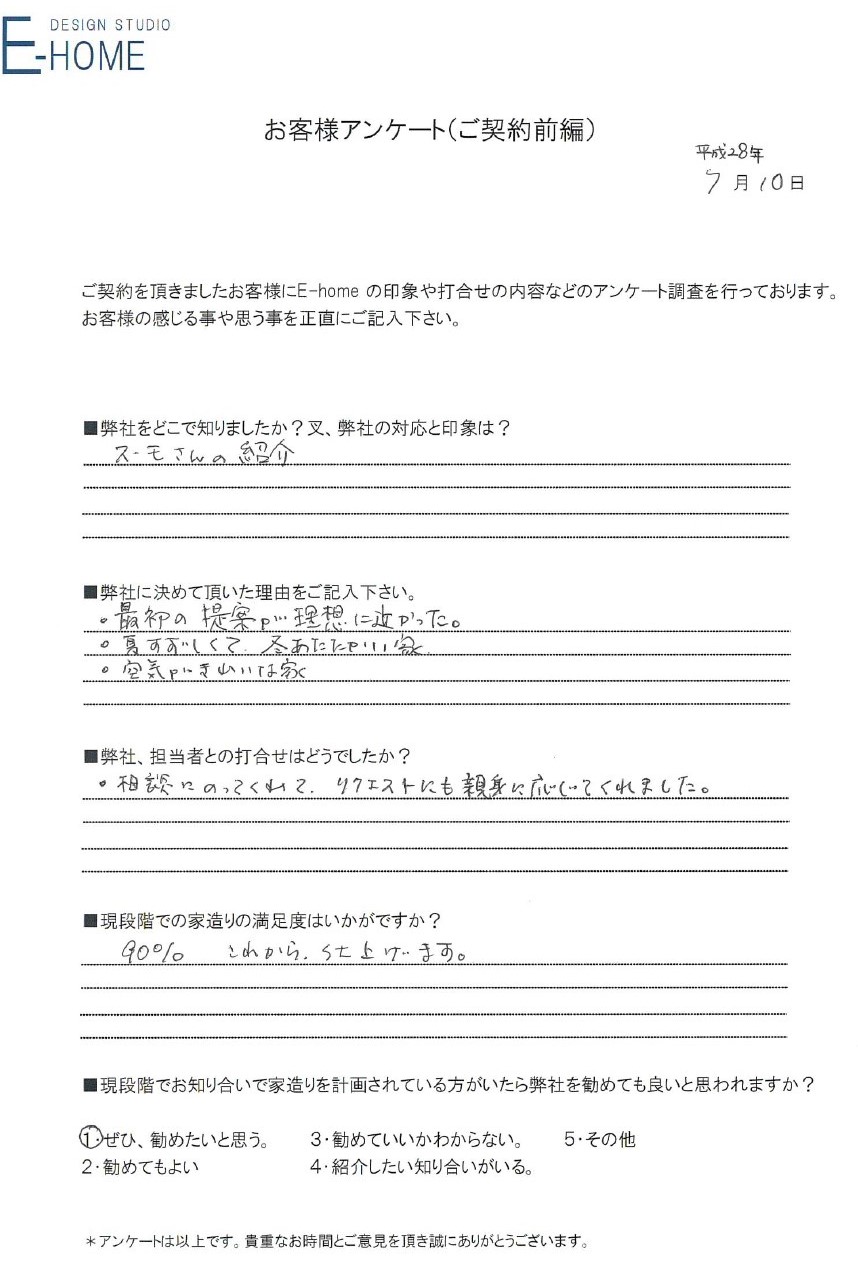 DESIGN STUDIO
E-HOME
お客様アンケート(ご契約前編)
平成28年
7月10日
ご契約を頂きましたお客様にE-home の印象や打合せの内容などのアンケート調査を行っております。
お客様の感じる事や思う事を正直にご記入下さい。
■弊社をどこで知りましたか?叉、弊社の対応と印象は?
スーモさんの紹介
■弊社に決めて頂いた理由をご記入下さい。
・最初の提案が理想に近かった。
・夏すずしくて、冬あたたかいい家
・空気がきれいな家
■弊社、担当者との打合せはどうでしたか?
・相談にのってくれて、リクエストにも親身に応じてくれました。
■現段階での家造りの満足度はいかがですか?
90% これから、仕上げます。
■現段階でお知り合いで家造りを計画されている方がいたら弊社を勧めても良いと思われますか?
1・ぜひ、勧めたいと思う。 3・勧めていいかわからない。 5・その他
2・勧めてもよい 4・紹介したい知り合いがいる。
*アンケートは以上です。貴重なお時間とご意見を頂き誠にありがとうございます。